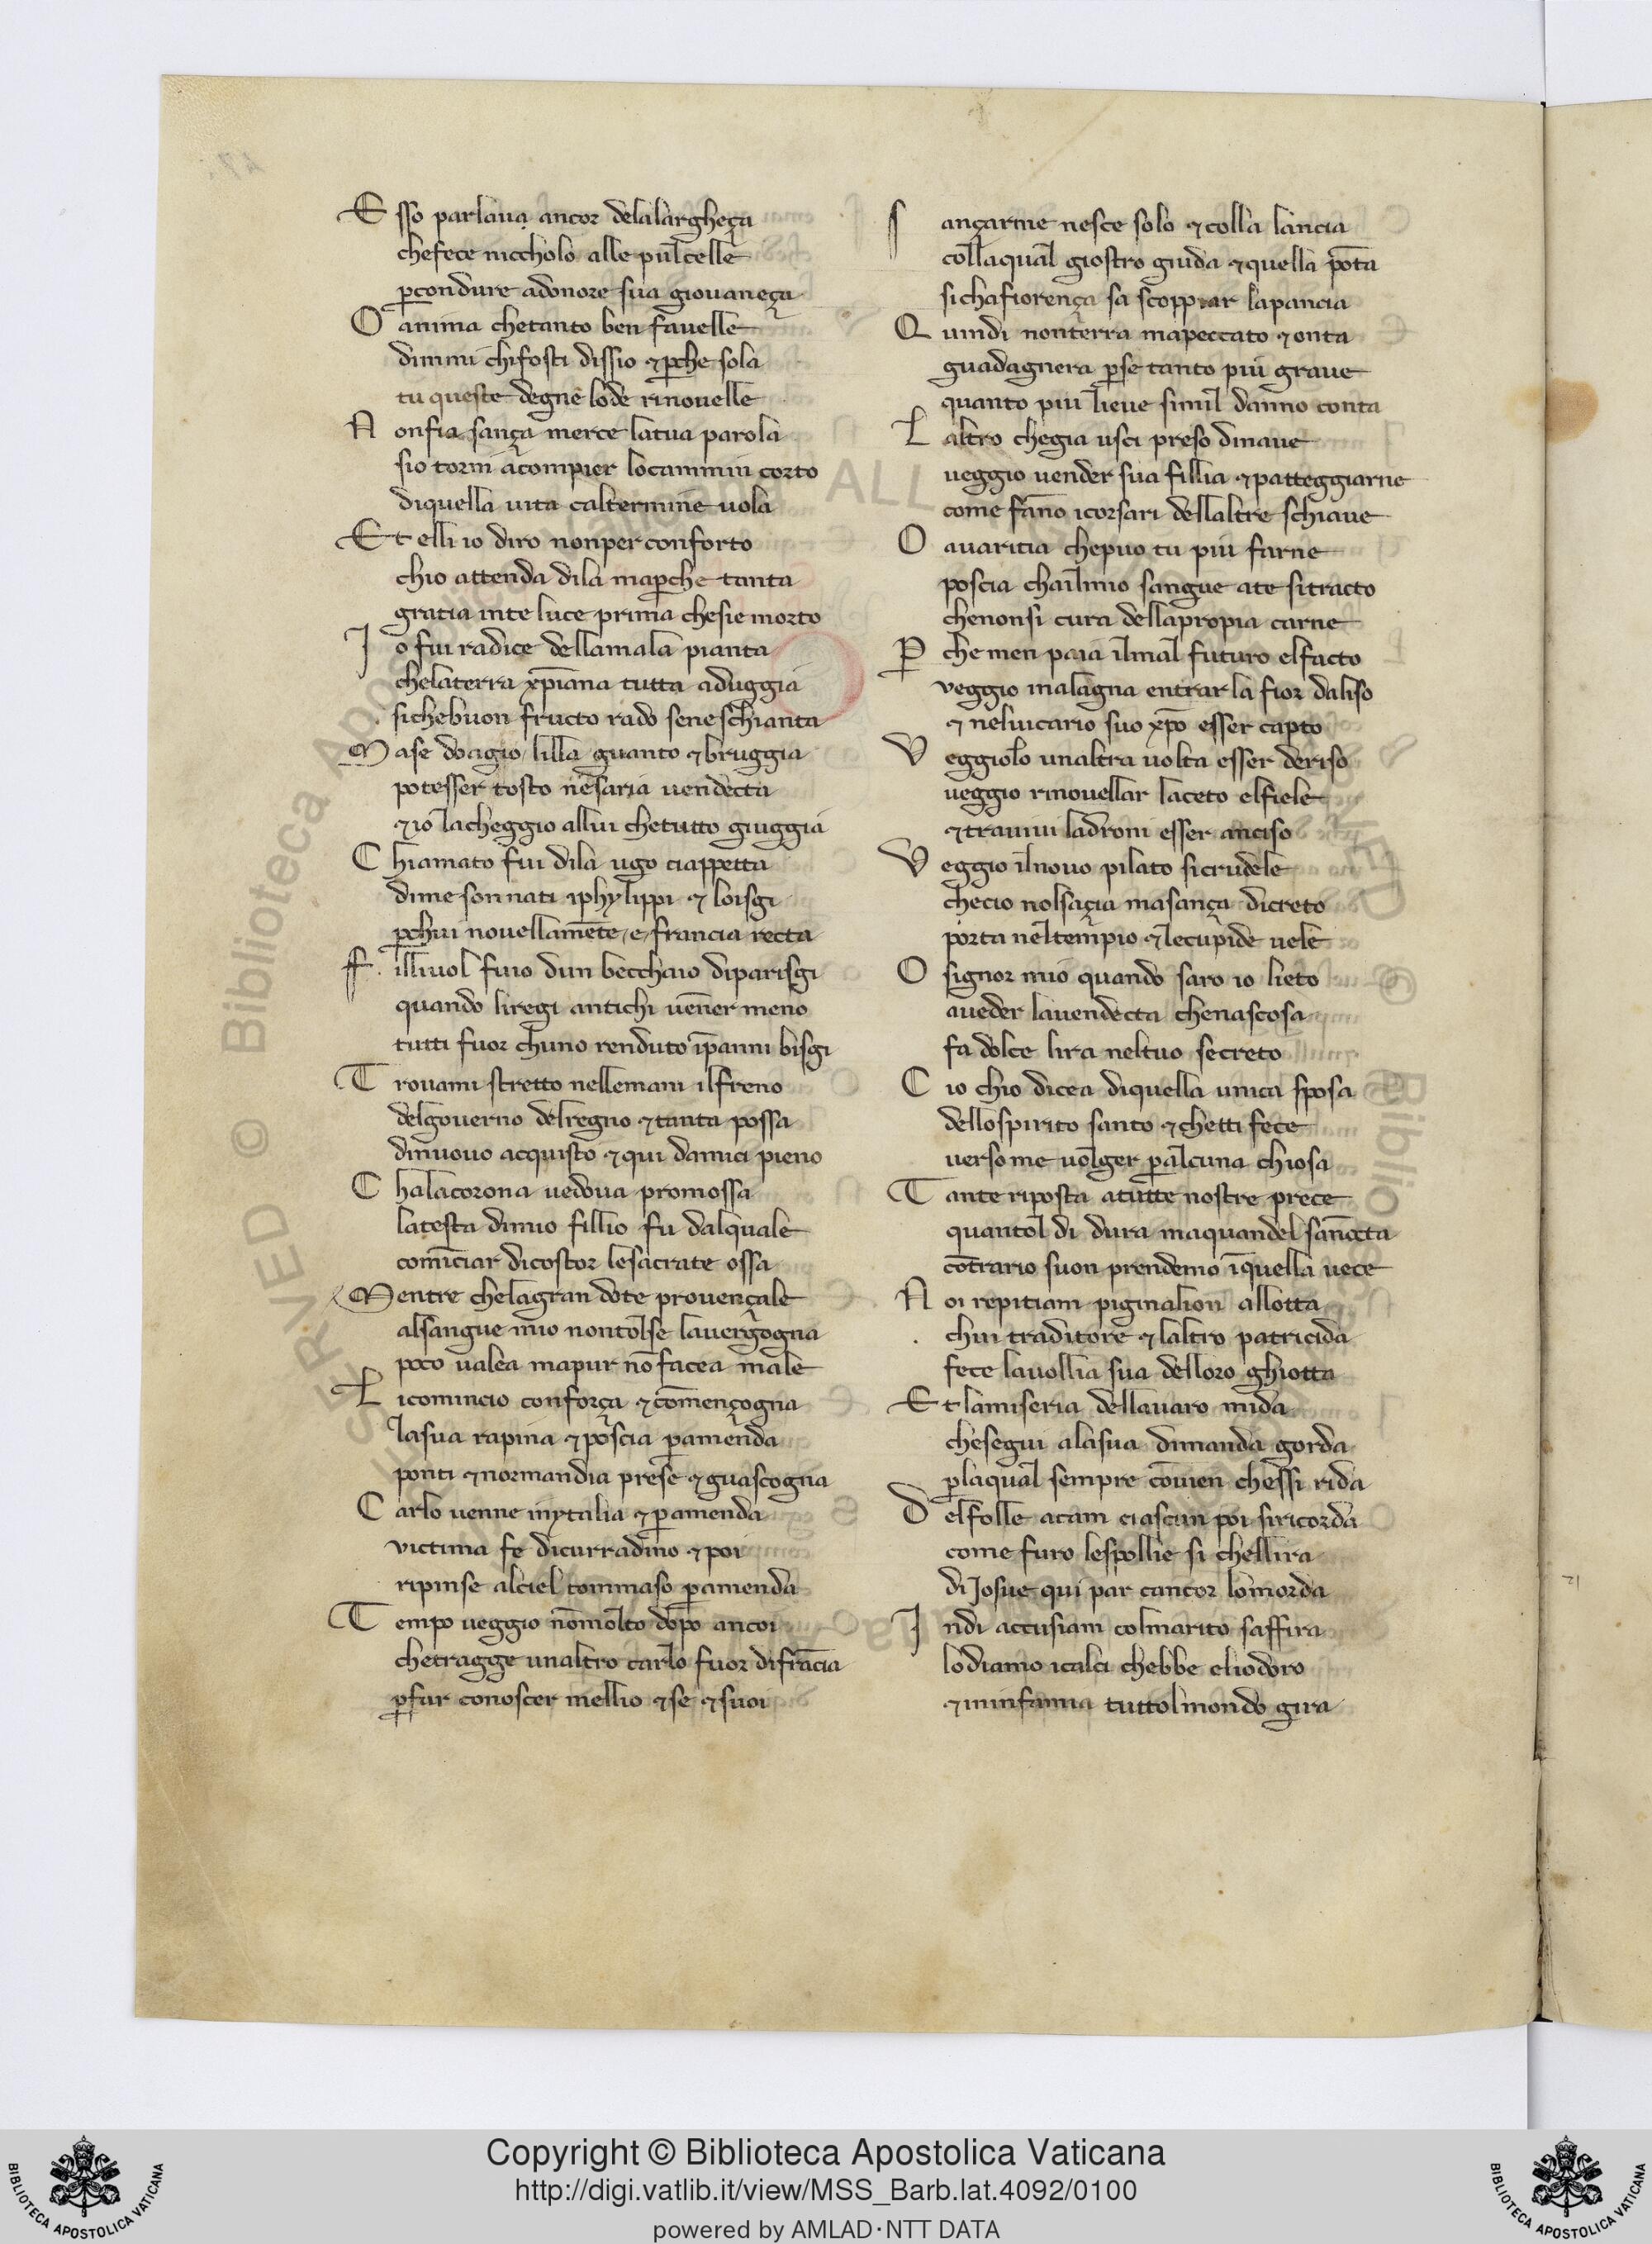 Esso parlaua ancor delalargheça
chefece niccholo alle pulcelle
ꝑcondure adonore sua giouaneça
O anima chetanto ben fauelle
dimmi chifosti dissio ⁊ ꝑche sola
tu queste degne lode rinouelle
Nonfia sança merce latua parola
sio torni acompier locammin corto
diquella uita caltermine uola
Et elli io diro nonper conforto
chio attenda dila maꝑche tanta
gratia inte luce prima chesie morto
Io fui radice dellamala pianta
chelaterra xp̄iana tutta aduggia
sichebuon fructo rado seneschianta
Mase doagio lilla guanto ⁊ bruggia
potesser tosto nesaria uendecta
⁊ io lacheggio allui chetutto giuggia
Chiamato fui dila ugo ciappetta
dime sonnati iphylippi ⁊ loisgi
ꝑchui nouellamēte e francia recta
Filliuol fuio dun becchaio diparisgi
quando liregi antichi uēner meno
tutti fuor chuno renduto īpanni bisgi
Trouami stretto nellemani ilfreno
delgouerno delregno ⁊ tanta possa
dinuouo acquisto ⁊ qui damici pieno
Chalacorona uedoua promossa
latesta dimio fillio fu dalquale
comīciar dicostor lesacrate ossa
Mentre chelagran dote prouençale
alsangue mio nontolse lauergogna
poco ualea mapur nō facea male
Licomincio conforça ⁊ cōmençogna
lasua rapina ⁊ poscia ꝑamenda
ponti ⁊ normandia prese ⁊ guascogna
Carlo uenne inytalia ⁊ ꝑamenda
uictima fe dicurradino ⁊ poi
ripinse alciel tommaso ꝑamenda
Tempo ueggio nōmolto dopo ancoi
chetragge unaltro carlo fuor difrācia
ꝑfar conoscer mellio ⁊ se ⁊ suoi
Sançarme nesce solo ⁊ colla lancia
collaqual giostro giuda ⁊ quella pōta
sichafiorença fa scoppiar lapancia
Quindi nonterra mapeccato ⁊ onta
guadagnera ꝑse tanto piu graue
quanto piu lieue simil danno conta
Laltro chegia usci preso dinaue
ueggio uender sua fillia ⁊ patteggiarne
come fāno icorsari dellaltre schiaue
O auaritia chepuo tu piu farne
poscia chailmio sangue ate sitracto
chenonsi cura dellapropia carne
Ꝑche men paia ilmal futuro elfacto
ueggio inalagna entrar la fior daliso
⁊ neluicario suo xp̄o esser capto
Veggiolo unaltra uolta esser deriso
ueggio rinouellar laceto elfiele
⁊ trauiui ladroni esser anciso
Veggio ilnouo pilato sicrudele
checio nolsaçia masança dicreto
porta neltempio ⁊ lecupide uele
O signor mio quando saro io lieto
aueder lauendecta chenascosa
fa dolce lira neltuo secreto
Cio chio dicea diquella unica sposa
dellospirito santo ⁊ chetti fece
uerso me uolger ꝑalcuna chiosa
Tante riposta atutte nostre prece
quantol di dura maquandel sānocta
cōtrario suon prendemo īquella uece
Noi repitiam pigmalion allotta
chui traditore ⁊ laltro patricida
fece lauollia sua delloro ghiotta
Et lamiseria dellauaro mida
chesegui alasua dimanda gorda
ꝑlaqual sempre cōuien chessi rida
Delfolle acam ciascun poi siricorda
come furo lespollie si chellira
di Josue qui par cancor lomorda
Indi accusiam colmarito saffira
lodiamo icalci chebbe eliodoro
⁊ ininfamia tuttolmondo gira
Copyright © Biblioteca Apostolica Vaticana
http://digi.vatlib.it/view/MSS_Barb.lat.4092/0100
powered by AMLAD·NTT DATA
BIBLIOTECA APOSTOLICA VATICANA
BIBLIOTECA APOSTOLICA VATICANA